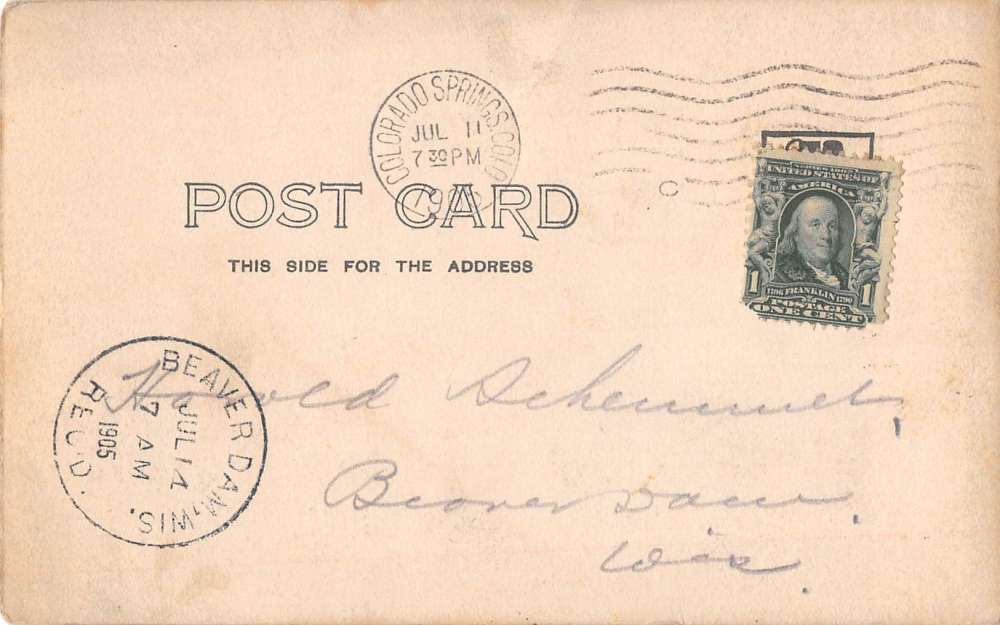 COLORADO SPRINGS, COLO
JUL 11
7 30 PM
C
POST CARD
THIS SIDE FOR THE ADDRESS
SERIES 1902
UNITED STATES OF
AMERICA
1 1706 FRANKLIN 1790 1
POSTAGE
ONE CENT
BEAVER DAM, WIS.
JUL 14
7 AM
1905
REC'D.
Harold
Beaver Dam,
Wis.